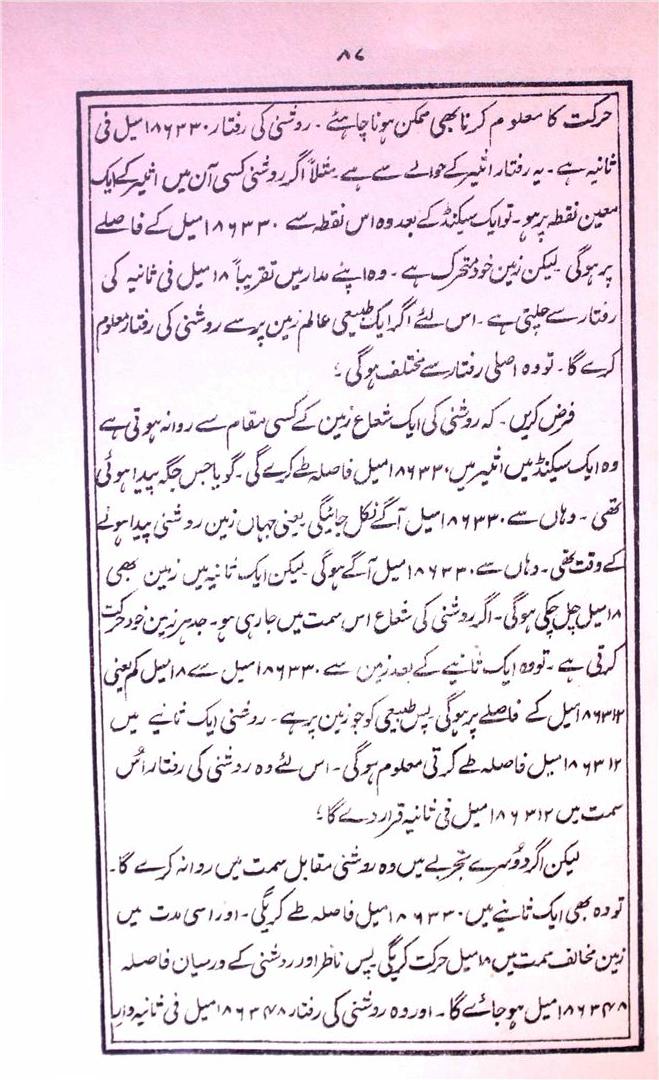 ۸۷
حرکت کا معلوم کرنا بھی ممکن ہونا چاہئے ۔ روشنی کی رفتار ۱۸۶۳۳۰ میل فی
ثانیہ ہے ۔ یہ رفتار اثیر کے حوالے سے ہے مثلاً اگر روشنی کسی آن میں اثیر کے ایک
معین نقطہ پر ہو ۔ تو ایک سیکنڈ کے بعد وہ اس نقطہ سے ۱۸۶۳۳۰ میل کے فاصلے
پر ہوگی لیکن زمین خود متحرک ہے ۔ وہ اپنے مدار میں تقریباً ۱۸ میل فی ثانیہ کی
رفتار سے چلتی ہے ۔ اس لئے اگر ایک طبیعی عالم زمین پر سے روشنی کی رفتار معلوم
کرے گا ۔ تو وہ اصلی رفتار سے مختلف ہوگی ؛
فرض کریں ۔ کہ روشنی کی ایک شعاع زمین کے کسی مقام سے روانہ ہوتی ہے
وہ ایک سیکنڈ میں اثیر میں ۱۸۶۳۳۰ میل فاصلہ طے کرے گی ۔ گویا جس جگہ پیدا ہوئی
تھی ۔ وہاں سے ۱۸۶۳۳۰ میل آگے نکل جائیگی یعنی جہاں زمین روشنی پیدا ہونے
کے وقت تھی ۔ وہاں سے ۱۸۶۳۳۰ میل آگے ہوگی لیکن ایک ثانیہ میں زمین بھی
۱۸ میل چل چکی ہوگی ۔ اگر روشنی کی شعاع اس سمت میں جا رہی ہو ۔ جدہر زمین خود حرکت
کرتی ہے ۔ تو وہ ایک ثانیے کے بعد زمین سے ۱۸۶۳۳۰ میل سے ۱۸ میل کم یعنی
۱۸۶۳۱۲ میل کے فاصلے پر ہوگی پس طبیعی کو جو زمین پر ہے ۔ روشنی ایک ثانیے میں
۱۸۶۳۱۲ میل فاصلہ طے کرتی معلوم ہوگی ۔ اس لئے وہ روشنی کی رفتار اُس
سمت میں ۱۸۶۳۱۲ میل فی ثانیہ قرار دے گا ؛
لیکن اگر دُوسرے تجربے میں وہ روشنی مقابل سمت میں روانہ کرے گا ۔
تو وہ بھی ایک ثانیے میں ۱۸۶۳۳۰ میل فاصلہ طے کریگی ۔ اور اسی مدت میں
زمین مخالف سمت میں ۱۸ میل حرکت کریگی پس ناظر اور روشنی کے درمیان فاصلہ
۱۸۶۳۴۸ میل ہو جائے گا ۔ اور وہ روشنی کی رفتار ۱۸۶۳۴۸ میل فی ثانیہ